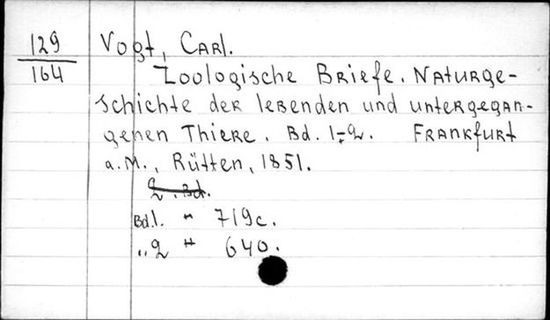 129
164
Vogt, Carl.
Zoologische Briefe. Naturge-
schichte der lebenden und untergegan-
genen Thiere. Bd. 1-2. Frankfurt
a.M., Rütten, 1851.
2. Bd.
Bd.1. " 719c.
„ 2 " 640.